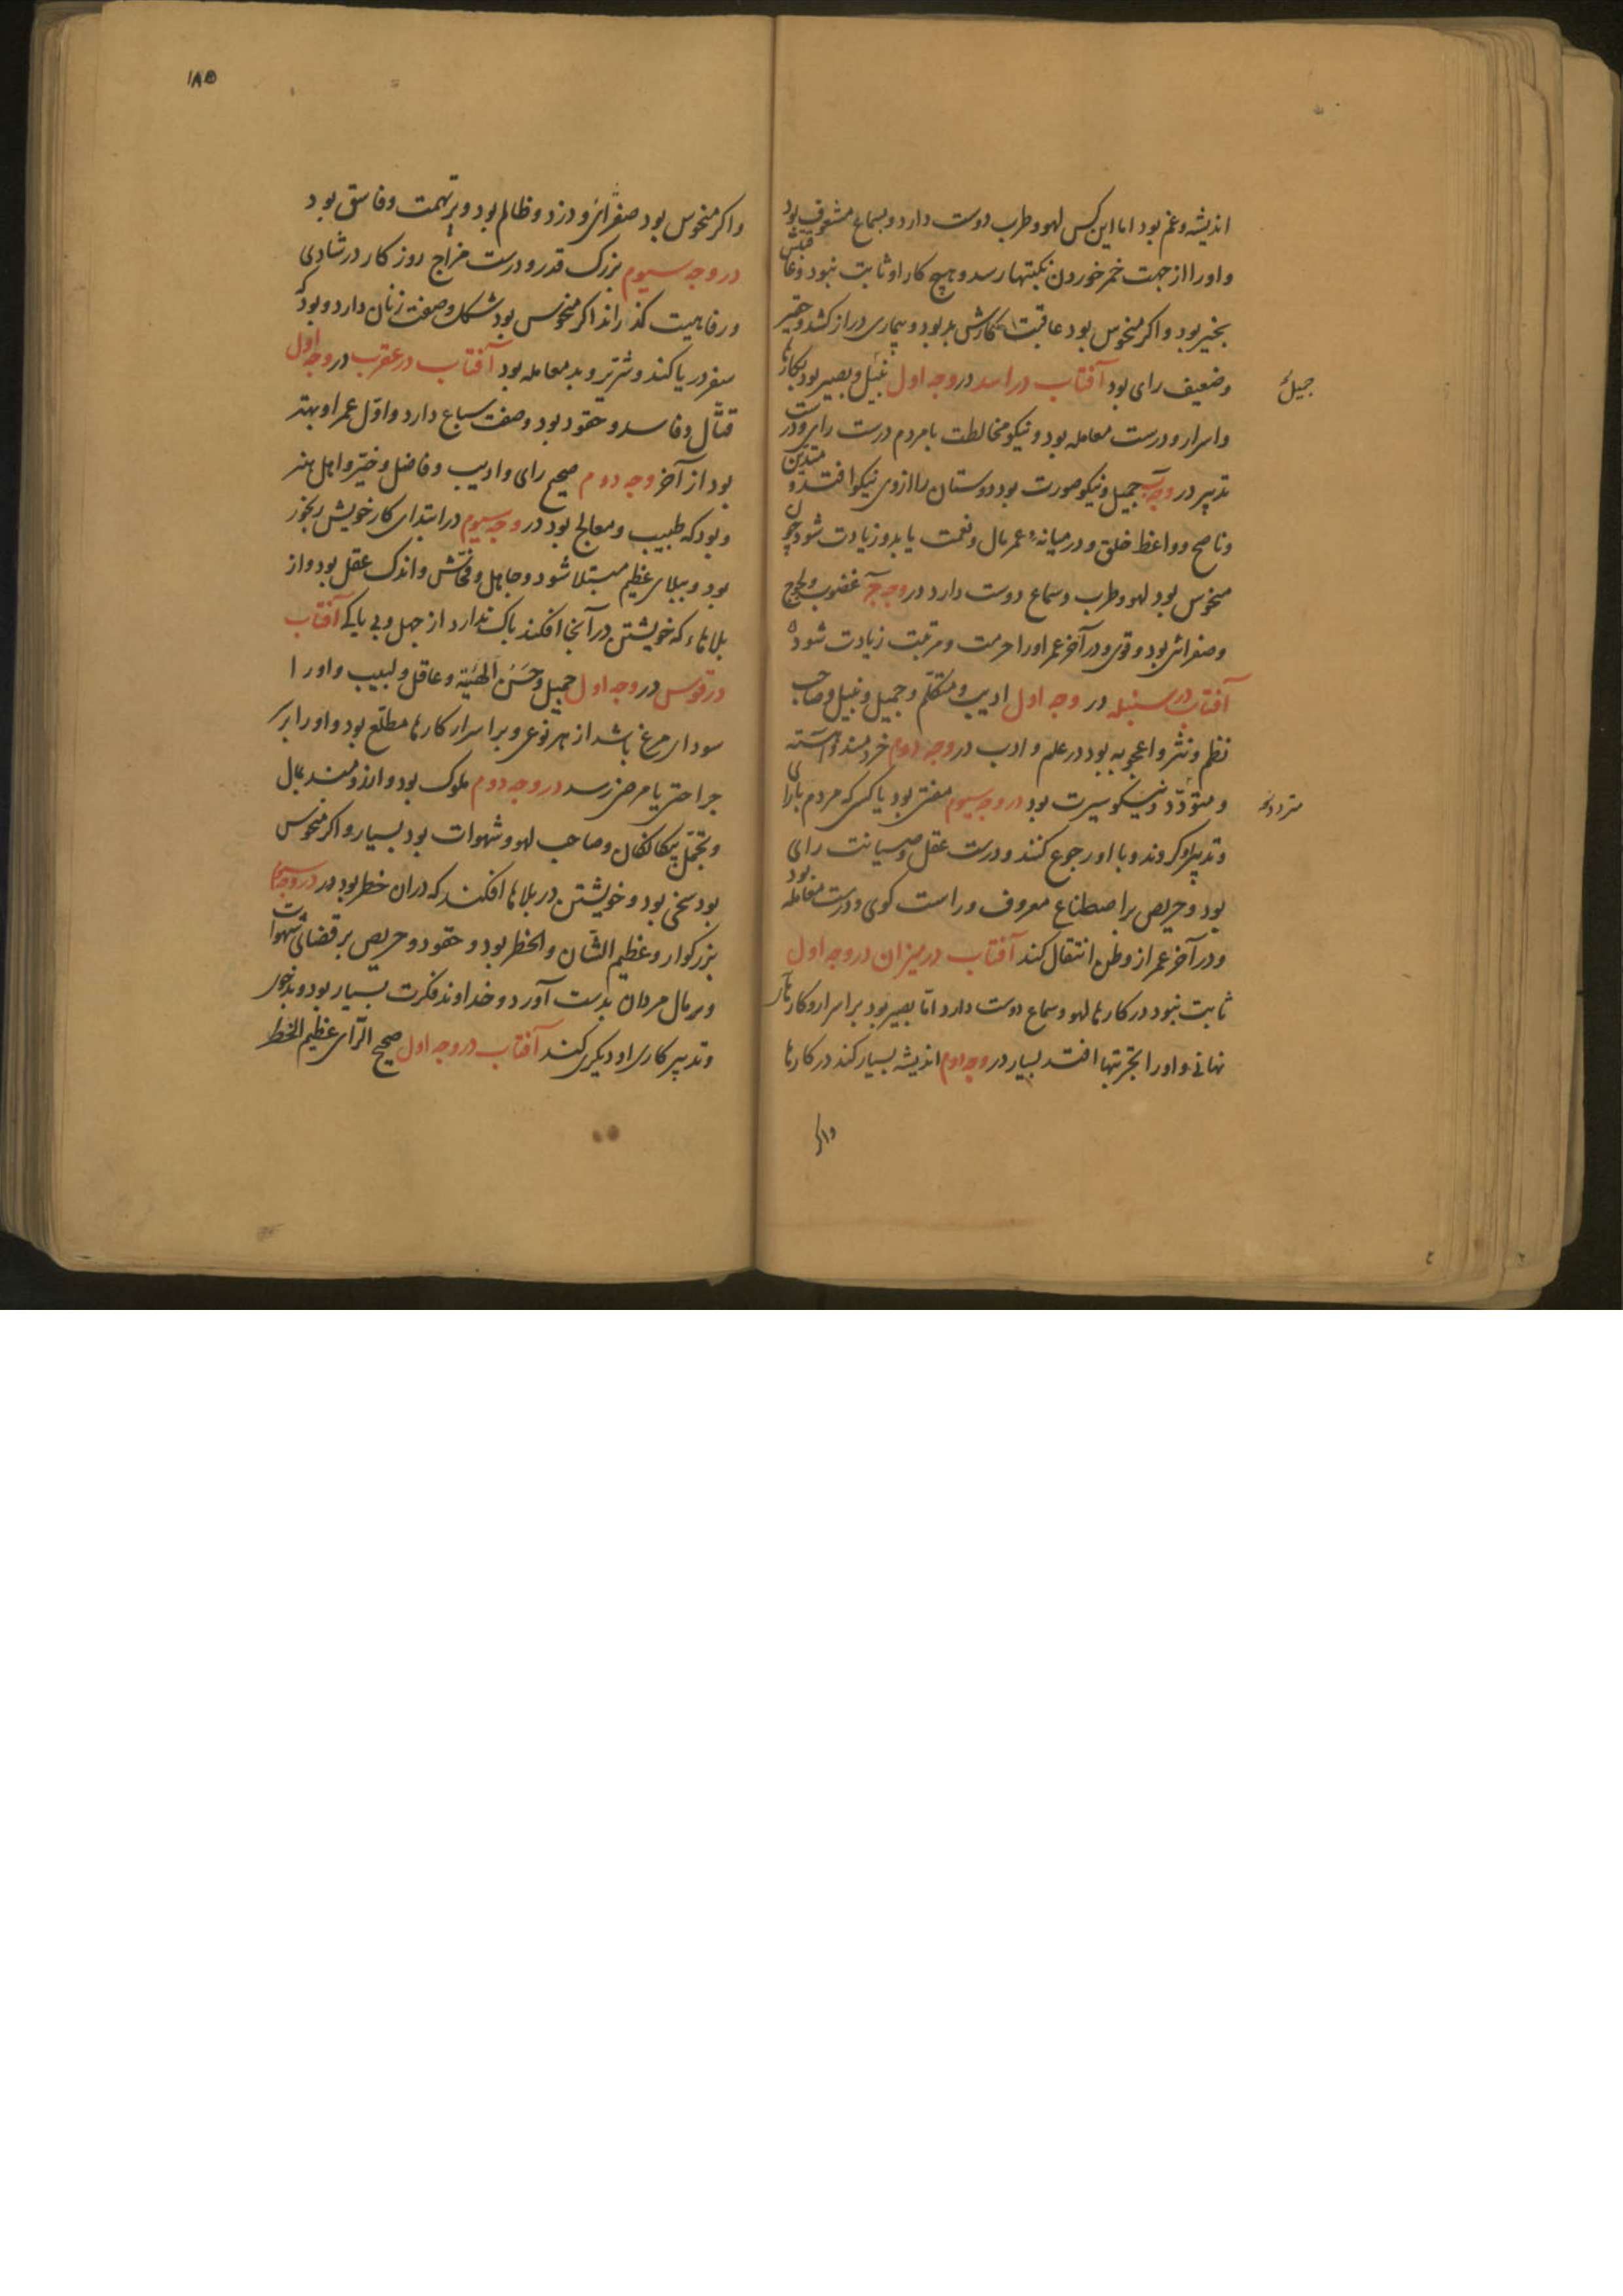 اندیشه و غم بود اما این کس لهو و طرب دوست دارد و بسماع مشعوف بود
و اورا از جهت خمر خوردن نکبتها رسد و هیچ کار او ثابت نبود و عاقبتش
بخیر بود و اکر منحوس بود عاقبت کارش بد بود و بیماری دراز کشد و حقیر
و ضعیف رای بود آفتاب در اسد در وجه اول نبیل و بصیر بود بکارها
جمیل
و اسرار و درست معامله بود و نیکو مخالطت با مردم درست رای و درست
تدبیر در وجه ب جمیل و نیکو صورت بود دوستان را ازوی نیکو افتد و متدین
و ناصح و واعظ خلق و در میانهٔ عمر مال و نعمت یابد و زیادت شود چون
منحوس بود لهو و طرب و سماع دوست دارد در وجه ج غضوب و لجوج
و صفرائی بود و قوی و در آخر عمر اورا حرمت و مرتبت زیادت شود
آفتاب در سنبله در وجه اول ادیب و متکلم و جمیل و نبیل و صاحب
نظم و نثر و اعجوبه بود در علم و ادب در وجه دوم خردمند و آهسته
و متودد و نیکو سیرت بود در وجه سیوم مفتی بود یا کسی که مردم بارای
و تدبیر او کروند و با او رجوع کنند و درست عقل و صیانت رای
بود و حریص بر اصطناع معروف و راست کوی و درست معامله بود
و در آخر عمر از وطن انتقال کند آفتاب در میزان در وجه اول
ثابت نبود در کارها لهو و سماع دوست دارد اما بصیر بود بر اسرار و کارهای
نهانی و اورا تجربتها افتد بسیار در وجه دوم اندیشه بسیار کند در کارها
واکر
۱۸۵
واکر منحوس بود صفرائی و دزد و ظالم بود و پر تهمت و فاسق بود
در وجه سیوم بزرک قدر و درست مزاج روزکار در شادی
و رفاهیت کذراند اکر منحوس بود شکل و صفت زنان دارد و بود که
سفر دریا کند و شریر و بد معامله بود آفتاب در عقرب در وجه اول
قتال و فاسد و حقود بود و صفت سباع دارد و اول عمر او بهتر
بود از آخر وجه دوم صحیح رای و ادیب و فاضل و خیر و اهل هنر
و بود که طبیب و معالج بود در وجه سیوم در ابتدای کار خویش رنجور
بود و ببلای عظیم مبتلا شود و جاهل و فحاش و اندک عقل بود و از
بلاهاء که خویشتن در آنجا افکند باک ندارد از جهل و بی باکی آفتاب
در قوس در وجه اول جمیل و حسن الهیئة و عاقل و لبیب و اورا
سودای مرغ باشد از هر نوعی و بر اسرار کارها مطلع بود و اورا بر سر
جراحتی یا مرضی رسد در وجه دوم ملوک بود و ارزومند بمال
و تجمل بیکانکان و صاحب لهو و شهوات بود بسیار و اکر منحوس
بود سخی بود و خویشتن در بلاها افکند که دران خطر بود در در وجه سیوم
بزرکوار و عظیم الشان و الخطر بود و حقود و حریص بر قضای شهوات
و بر مال مردان بدست آورد و خداوند فکرت بسیار بود و بدخوی
و تدبیر کاری او دیکری کند آفتاب در وجه اول صحیح الرای عظیم الخطر